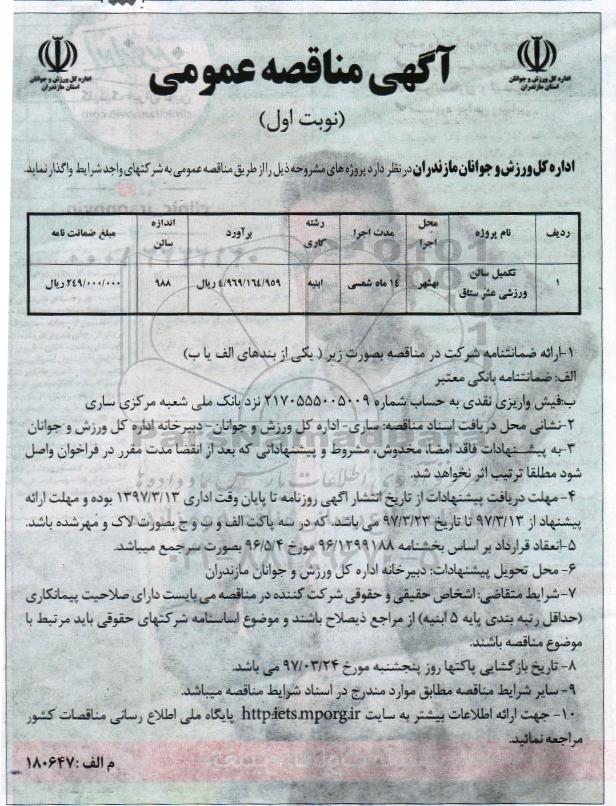 آگهی مناقصه عمومی
اداره کل ورزش و جوانان
استان مازندران
اداره کل ورزش و جوانان
استان مازندران
(نوبت اول)
اداره کل ورزش و جوانان مازندران در نظر دارد پروژه های مشروحه ذیل را از طریق مناقصه عمومی به شرکتهای واجد شرایط واگذار نماید.
ردیف نام پروژه محل اجرا مدت اجرا رشته کاری برآورد اندازه سالن مبلغ ضمانت نامه
۱ تکمیل سالن ورزشی عشر ستاق بهشهر ۱۴ ماه شمسی ابنیه ۴/۹۶۹/۱۶۴/۹۵۹ ریال ۹۸۸ ۲۴۹/۰۰۰/۰۰۰ ریال
۱-ارائه ضمانتنامه شرکت در مناقصه بصورت زیر ( یکی از بندهای الف یا ب)
الف: ضمانتنامه بانکی معتبر
ب:فیش واریزی نقدی به حساب شماره ۲۱۷۰۵۵۵۰۰۵۰۰۹ نزد بانک ملی شعبه مرکزی ساری
۲-نشانی محل دریافت اسناد مناقصه: ساری- اداره کل ورزش و جوانان- دبیرخانه اداره کل ورزش و جوانان
۳-به پیشنهادات فاقد امضا، مخدوش، مشروط و پیشنهاداتی که بعد از انقضا مدت مقرر در فراخوان واصل
شود مطلقا ترتیب اثر نخواهد شد.
۴- مهلت دریافت پیشنهادات از تاریخ انتشار اگهی روزنامه تا پایان وقت اداری ۱۳۹۷/۳/۱۳ بوده و مهلت ارائه
پیشنهاد از ۹۷/۳/۱۳ تا تاریخ ۹۷/۳/۲۳ می باشد. که در سه پاکت الف و ب و ج بصورت لاک و مهرشده باشد.
۵-انعقاد قرارداد بر اساس بخشنامه ۹۶/۱۲۹۹۱۸۸ مورخ ۹۶/۵/۴ بصورت سرجمع میباشد.
۶- محل تحویل پیشنهادات: دبیرخانه اداره کل ورزش و جوانان مازندران
۷-شرایط متقاضی: اشخاص حقیقی و حقوقی شرکت کننده در مناقصه می بایست دارای صلاحیت پیمانکاری
(حداقل رتبه بندی پایه ۵ ابنیه) از مراجع ذیصلاح باشند و موضوع اساسنامه شرکتهای حقوقی باید مرتبط با
موضوع مناقصه باشند.
۸- تاریخ بازگشایی پاکتها روز پنجشنبه مورخ ۹۷/۰۳/۲۴ می باشد.
۹- سایر شرایط مناقصه مطابق موارد مندرج در اسناد شرایط مناقصه میباشد.
۱۰- جهت ارائه اطلاعات بیشتر به سایت http:iets.mporg.ir پایگاه ملی اطلاع رسانی مناقصات کشور
مراجعه نمائید.
م الف : ۱۸۰۶۴۷